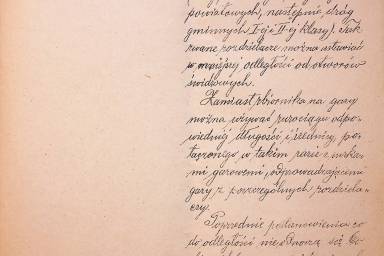 powiatowych, następnie dróg
gminnych I-ej i II-ej klasy). Tak
zwane rozdzielacze można ustawiać
w mniejszej odległości od otworów
świdrowych.
Zamiast zbiornika na gazy
można używać rurociągu odpo-
wiedniej długości i średnicy, po-
łączonego, w takim razie z rurka-
mi gazowemi, odprowadzającemi
gazy z poszczególnych rozdziela-
czy.
Poprzednie postanowienia co
do odległości nie tyczą się